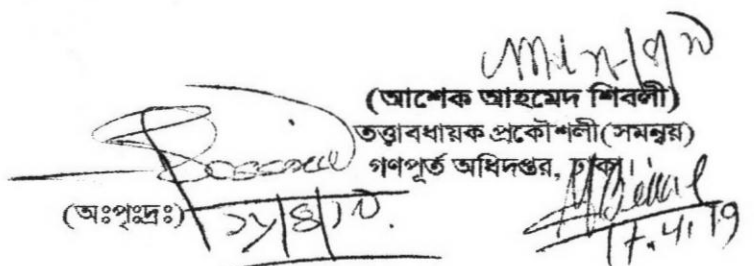 (আশেক আহমেদ শিবলী)
তত্ত্বাবধায়ক প্রকৌশলী(সমন্বয়)
গণপূর্ত অধিদপ্তর, ঢাকা।
(অঃপৃঃদ্রঃ)
17.4.19